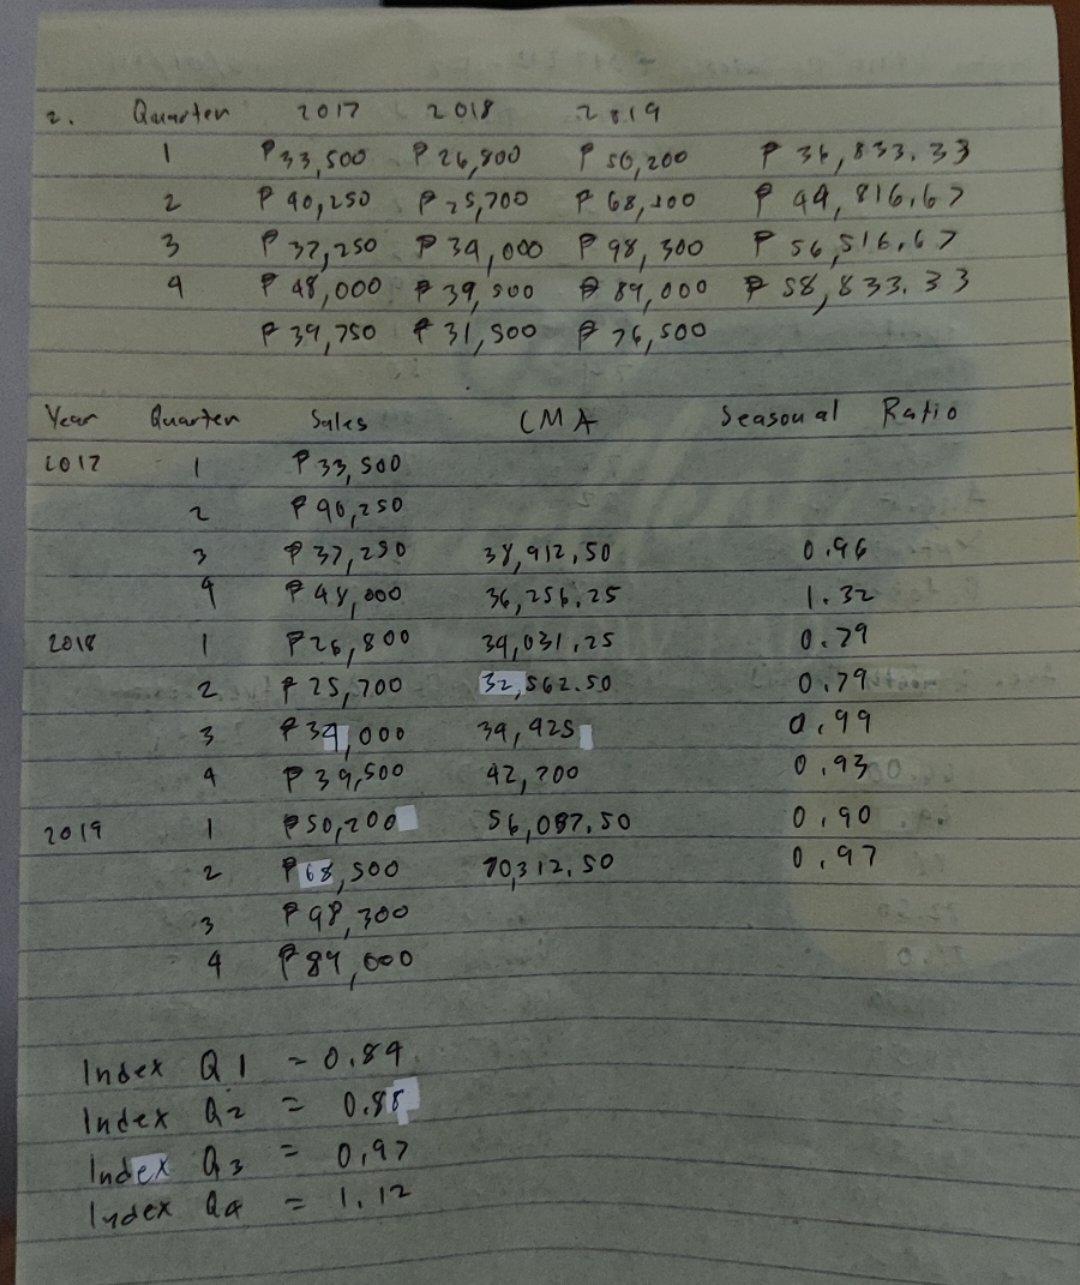 2. Quarter 2017 2018 2019
1 ₱33,500 ₱26,800 ₱50,200 ₱36,833.33
2 ₱40,250 ₱25,700 ₱68,500 ₱44,816.67
3 ₱37,250 ₱34,000 ₱98,300 ₱56,516.67
4 ₱48,000 ₱39,500 ₱89,000 ₱58,833.33
₱39,750 ₱31,500 ₱76,500
Year Quarter Sales CMA Seasonal Ratio
2017 1 ₱33,500
2 ₱40,250
3 ₱37,250 38,912.50 0.96
4 ₱48,000 36,256.25 1.32
2018 1 ₱26,800 34,031.25 0.79
2 ₱25,700 32,562.50 0.79
3 ₱34,000 34,425 0.99
4 ₱39,500 42,700 0.93
2019 1 ₱50,200 56,087.50 0.90
2 ₱68,500 70,312.50 0.97
3 ₱98,300
4 ₱89,000
Index Q1 = 0.84
Index Q2 = 0.88
Index Q3 = 0.97
Index Q4 = 1.12